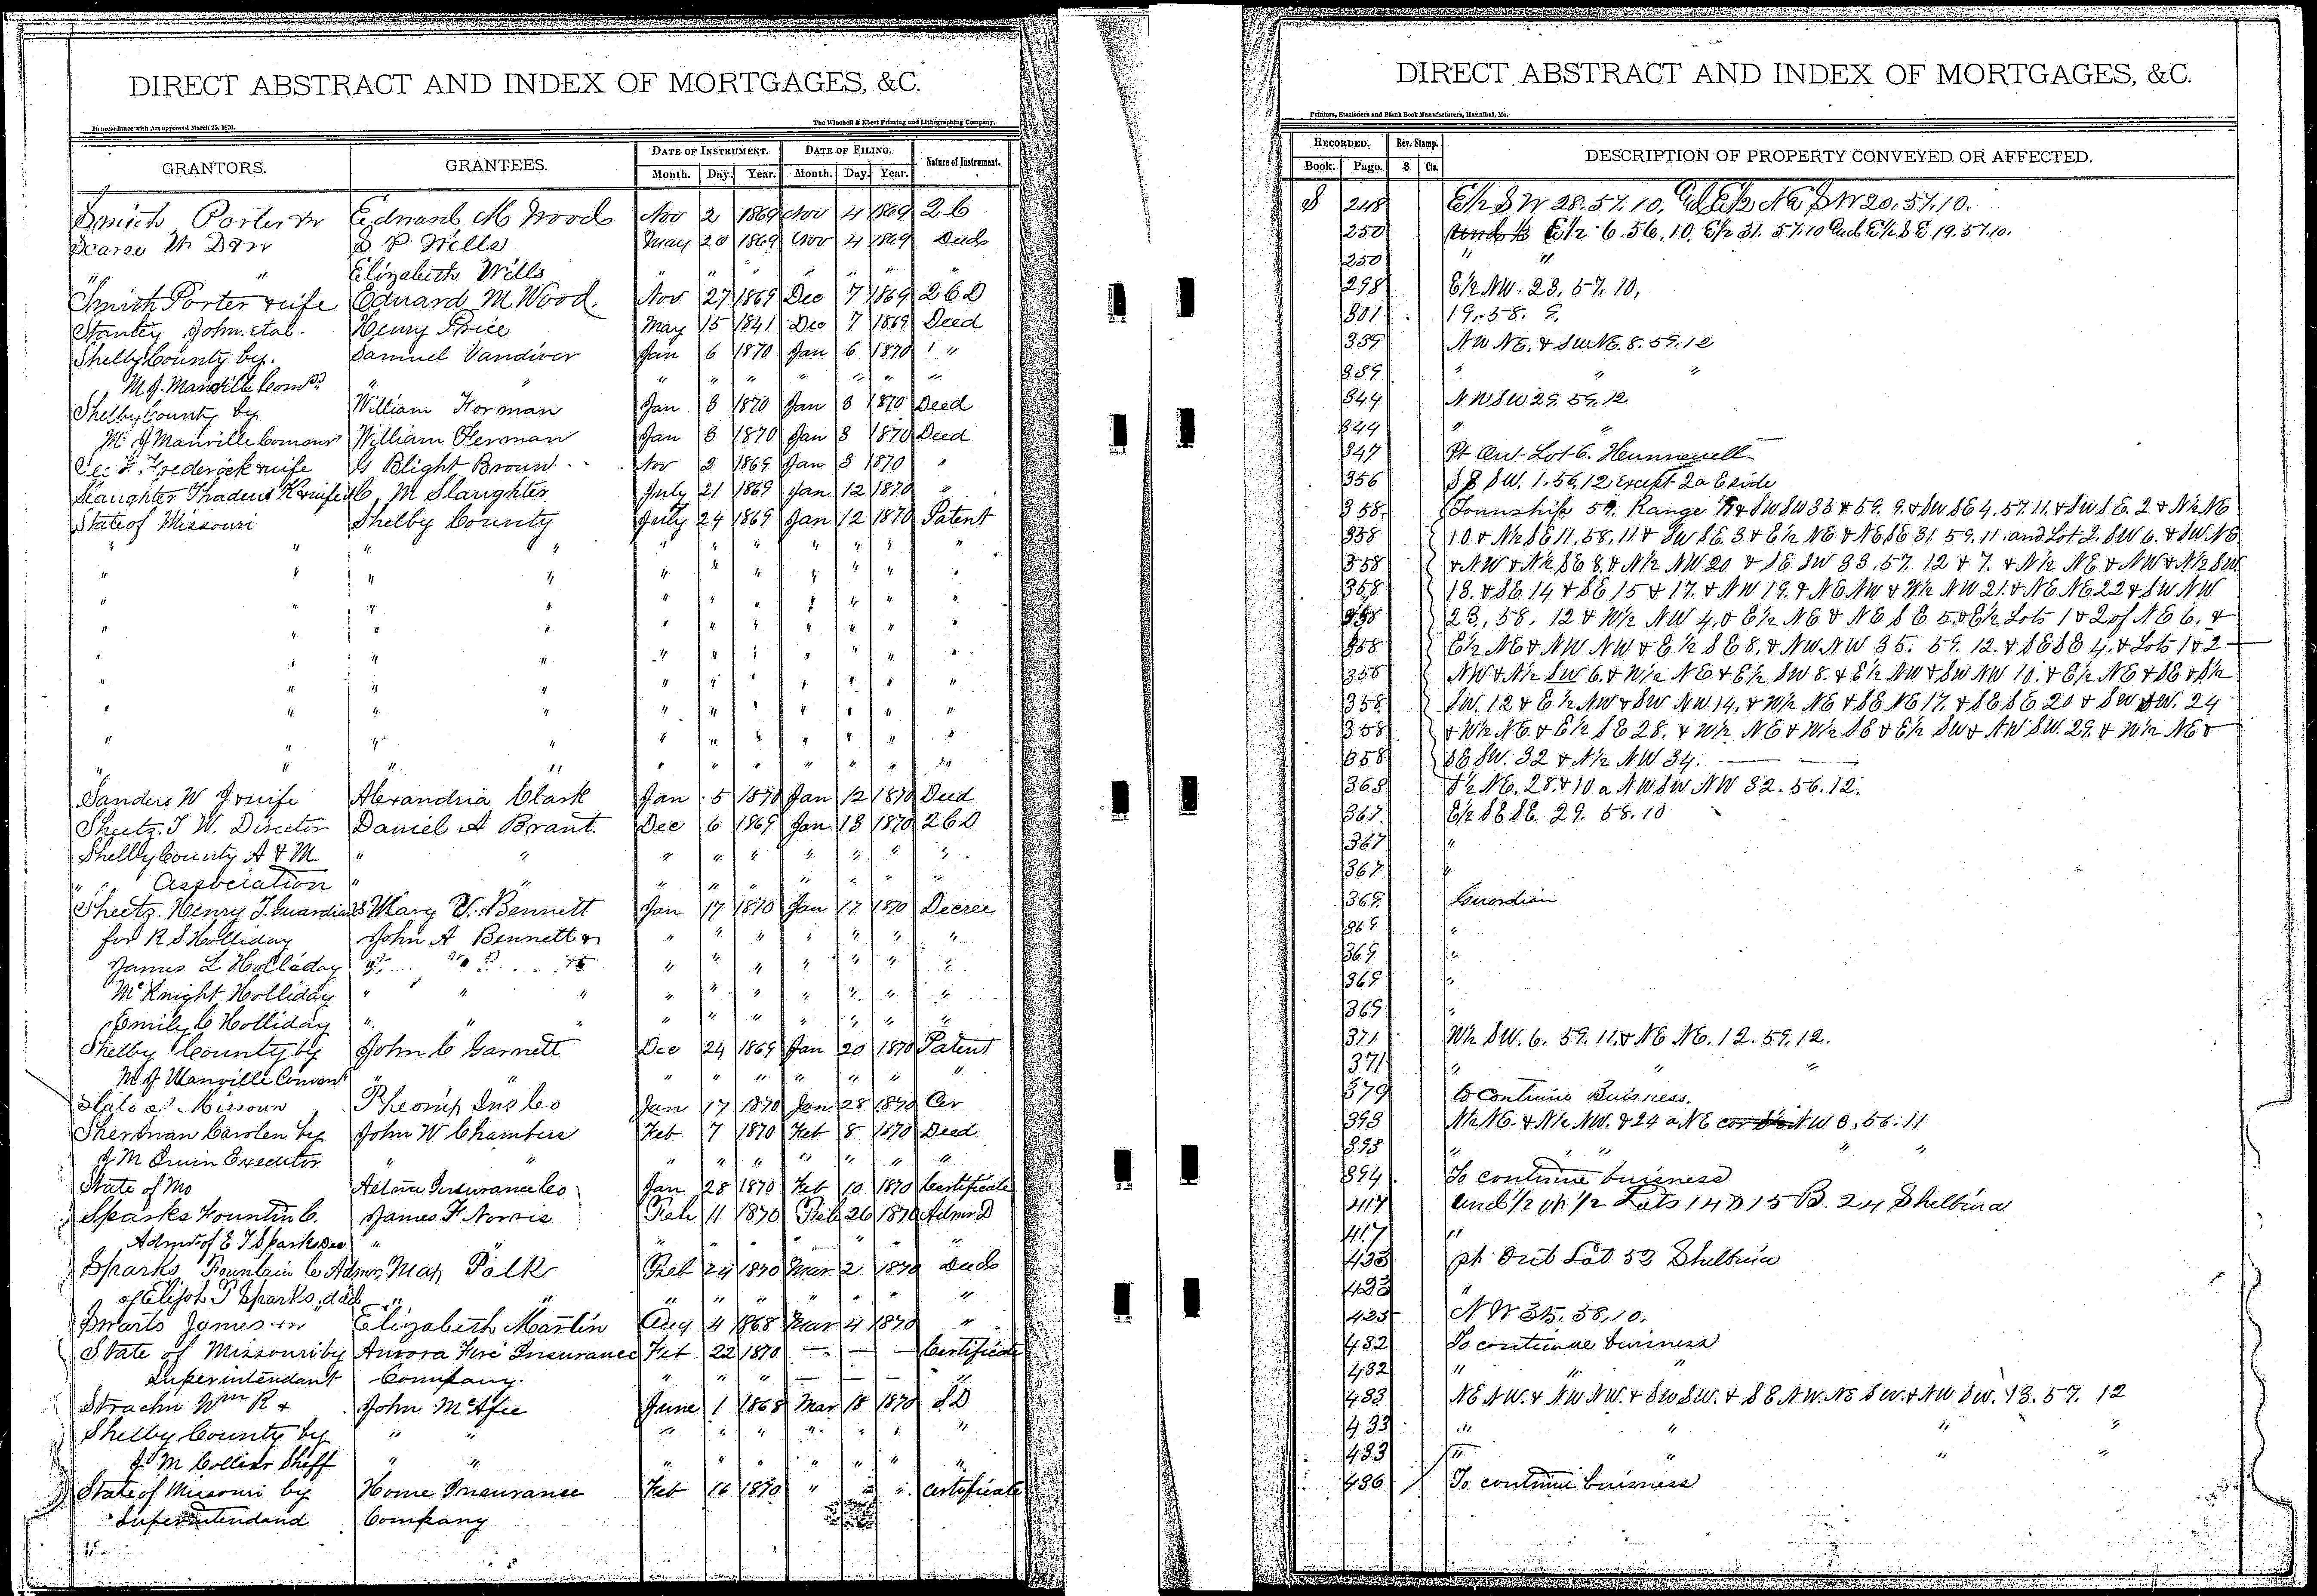 DIRECT ABSTRACT AND INDEX OF MORTGAGES, &C.
In accordance with Act approved March 25, 1870.
The Winchell & Ebert Printing and Lithographing Company,
GRANTORS. GRANTEES. DATE OF INSTRUMENT. DATE OF FILING. Nature of Instrument.
Month. Day. Year. Month. Day. Year.
Smith Porter Edward M Wood Nov 2 1869 Nov 4 1869
Scarce W Wills May 20 1869 Nov 4 1869 Deed
" " Elizabeth Wills " " " " " " "
Smith Porter & wife Edward M Wood. Nov 27 1869 Dec 7 1869
Stanley John. et al. Henry Price May 15 1841 Dec 7 1869 Deed
Shelby County by. Samuel Vandiver Jan 6 1870 Jan 6 1870 "
M J. Manville " " " " " " " " "
Shelby County by William Forman Jan 8 1870 Jan 8 1870 Deed
M J Manville William Herman Jan 8 1870 Jan 8 1870 Deed
Frederick & wife G Blight Brown Nov 2 1869 Jan 8 1870 "
Slaughter Thadeus K & wife M Slaughter July 21 1869 Jan 12 1870 "
State of Missouri Shelby County July 24 1869 Jan 12 1870 Patent
" " " " " " " " " " "
" " " " " " " " " " "
" " " " " " " " " " "
" " " " " " " " " " "
" " " " " " " " " " "
" " " " " " " " " " "
" " " " " " " " " " "
" " " " " " " " " " "
" " " " " " " " " " "
Sanders W J & wife Alexandria Clark Jan 5 1870 Jan 12 1870 Deed
Sheetz. J W. Director Daniel A Brant. Dec 6 1869 Jan 13 1870
Shelby County A & M. " " " " " " " " "
" " Association " " " " " " " " "
Sheetz. Henry J. Guardian Mary V. Bennett Jan 17 1870 Jan 17 1870 Decree
for R S Holliday John A Bennett & " " " " " " "
James L Holliday " " " " " " "
McKnight Holliday " " " " " " " " " "
Emily C Holliday " " " " " " " " " "
Shelby County by John C Garnett Dec 24 1869 Jan 20 1870 Patent
M J Manville " " " " " " " " "
State of Missouri Phoenix Ins Co Jan 17 1870 Jan 28 1870 Cer
Sherman Carolen by John W Chambers Feb 7 1870 Feb 8 1870 Deed
J M Irwin Executor " " " " " " " " "
State of Mo Aetna Insurance Co Jan 28 1870 Feb 10 1870 Certificate
Sparks Fountin C. James F Norris Feb 11 1870 Feb 26 1870 Admr D
Admr of E T Sparks Dec " " " " " " " "
Sparks Fountain C Admr May Polk Feb 24 1870 Mar 2 1870 Deed
of Elijah T Sparks, decd " " " " " " " " "
Swarts James Elizabeth Martin Aug 4 1868 Mar 4 1870 "
State of Missouri by Aurora Fire Insurance Feb 22 1870 — — — Certificate
Superintendant Company. " " " — — — "
Strachn Wm R & John McAfee June 1 1868 Mar 18 1870 S D
Shelby County by " " " " " " " " "
J M Collier Sheff " " " " " " " " "
State of Missouri by Home Insurance Feb 16 1870 " " " Certificate
Superintendand Company
DIRECT ABSTRACT AND INDEX OF MORTGAGES, &C.
Printers, Stationers and Blank Book Manufacturers, Hannibal, Mo.
RECORDED. Rev. Stamp. DESCRIPTION OF PROPERTY CONVEYED OR AFFECTED.
Book. Page. $ Cts.
S 248 E½ SW 28. 57. 10. SW 20. 57. 10.
250 E½ 6. 56. 10, E½ 31. 57. 10 E½ SE 19. 57. 10.
250 " "
298 E½ NW. 23. 57. 10,
301 19. 58. 9,
339 NW NE. & SW NE. 8. 59. 12
339 " " "
344 NW SW 29. 59. 12
344 " "
347 Pt Out-Lot 6. Hunnewell
356 SW. 1. 56. 12 Except 2a E side
358. Township 59. Range & SW SW 33 & 59. 9. & SW SE 4. 57. 11. & SW SE. 2 & N½ NE
358 10 & N½ SE 11. 58. 11 & SW SE 3 & E½ NE & NE SE 31. 59. 11. and Lot 2. SW 6. & SW NE
358 & NW & N½ SE 8. & N½ NW 20 & SE SW 33. 57. 12 & 7. & N½ NE & NW & N½ SW
358 13. & SE 14 & SE 15 & 17. & NW 19. & NE NW & W½ NW 21. & NE NE 22 & SW NW
358 23. 58. 12 & W½ NW 4. & E½ NE & NE SE 5. & E½ Lots 1 & 2 of NE 6. &
358 E½ NE & NW NW & E½ SE 8. & NW NW 35. 59. 12. & SE SE 4. & Lots 1 & 2
358 NW & N½ SW 6. & W½ NE & E½ SW 8. & E½ NW & SW NW 10. & E½ NE & SE & S½
358 SW. 12 & E½ NW & SW NW 14. & W½ NE & SE NE 17. & SE SE 20 & SW SW. 24
358 & W½ NE. & E½ SE 28. & W½ NE & W½ SE & E½ SW & NW SW. 29. & W½ NE &
358 SE SW. 32 & N½ NW 34.
363 NE. 28. & 10 a NW SW NW 32. 56. 12.
367. E½ SE SE. 29. 58. 10
367 "
367 "
369. Guardian
369 "
369 "
369 "
369 "
371 W½ SW. 6. 59. 11. & NE NE. 12. 59. 12.
371 " " "
379 To Continue Buisness.
393 N½ NE. & N½ NW. & 24 a NE cor NW 8. 56. 11
393 " " " "
394 To continue buisness
417 und ½ of ½ Lots 14 15 B. 24 Shelbina
417 "
423 pt Out Lot 53 Shelbina
423 "
425 NW 35. 58. 10.
432 To continue business
432 " " "
433 NE NW. & NW NW. & SW SW. & SE NW. NE SW. & NW SW. 13. 57. 12
433 " " " "
433 " " " "
436 To continue buisness